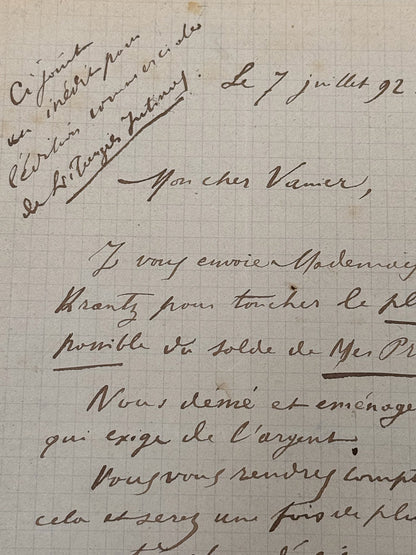 Ci joint
un inédit pour
l'édition commerciale
de Liturgies Intimes.
Le 7 juillet 92.
Mon cher Vanier,
Je vous envoie Mademois
Krantz pour toucher le pl
possible du solde de Mes Pr
Nous démé et eménage
qui exige de l'argent.
Vous vous rendrez compt
cela et serez une fois de plu